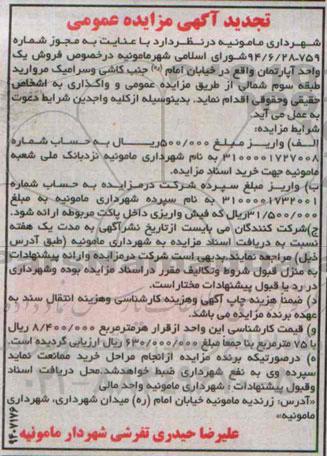 تجدید آگهی مزایده عمومی
شهرداری مامونیه درنظردارد با عنایت به مجوز شماره
۹۴/۶/۲۸-۷۵۹شورای اسلامی شهرمامونیه درخصوص فروش یک
واحد آپارتمان واقع در خیابان امام (ره) جنب کاشی وسرامیک مروارید
طبقه سوم شمالی از طریق مزایده عمومی و واگذاری به اشخاص
حقیقی وحقوقی اقدام نماید. بدینوسیله ازکلیه واجدین شرایط دعوت
به عمل می آید.
شرایط مزایده:
الف) واریز مبلغ ۵۰۰/۰۰۰ریال به حساب شماره
۳۱۰۰۰۰۱۷۲۷۰۰۸ به نام شهرداری مامونیه نزدبانک ملی شعبه
مامونیه جهت خرید اسناد مزایده.
ب) واریز مبلغ سپرده شرکت درمزایده به حساب شماره
۳۱۰۰۰۰۱۷۳۲۰۰۱ به نام سپرده شهرداری مامونیه به مبلغ
۳۱/۵۰۰/۰۰۰ریال که فیش واریزی داخل پاکت مربوطه ارائه شود.
ج)شرکت کنندگان می بایست ازتاریخ نشرآگهی به مدت یک هفته
نسبت به دریافت اسناد مزایده به شهرداری مامونیه (طبق آدرس
ذیل) مراجعه نمایند.بدیهی است شرکت درمزایده وارائه پیشنهادات
به منزل قبول شروط وتکالیف مقرر دراسناد مزایده بوده وشهرداری
در رد یا قبول پیشنهادات مختار است.
د) ضمناً هزینه چاپ آگهی وهزینه کارشناسی وهزینه انتقال سند به
عهده برنده مزایده می باشد.
و) قیمت کارشناسی این واحد ازقرار هرمترمربع ۸/۴۰۰/۰۰۰ ریال
با ۷۵ مترمربع بنا جمعاً مبلغ ۶۳۰/۰۰۰/۰۰۰ ریال ارزیابی گردیده است.
ه) درصورتیکه برنده مزایده ازانجام مراحل خرید ممانعت نماید
سپرده وی به نفع شهرداری ضبط خواهدشد.محل دریافت اسناد
وقبول پیشنهادات : شهرداری مامونیه واحد مالی
«آدرس: زرندیه مامونیه خیابان امام (ره) میدان شهرداری، شهرداری
مامونیه»
علیرضا حیدری تفرشی شهردار مامونیه
۹۴۰۷۱۷۶